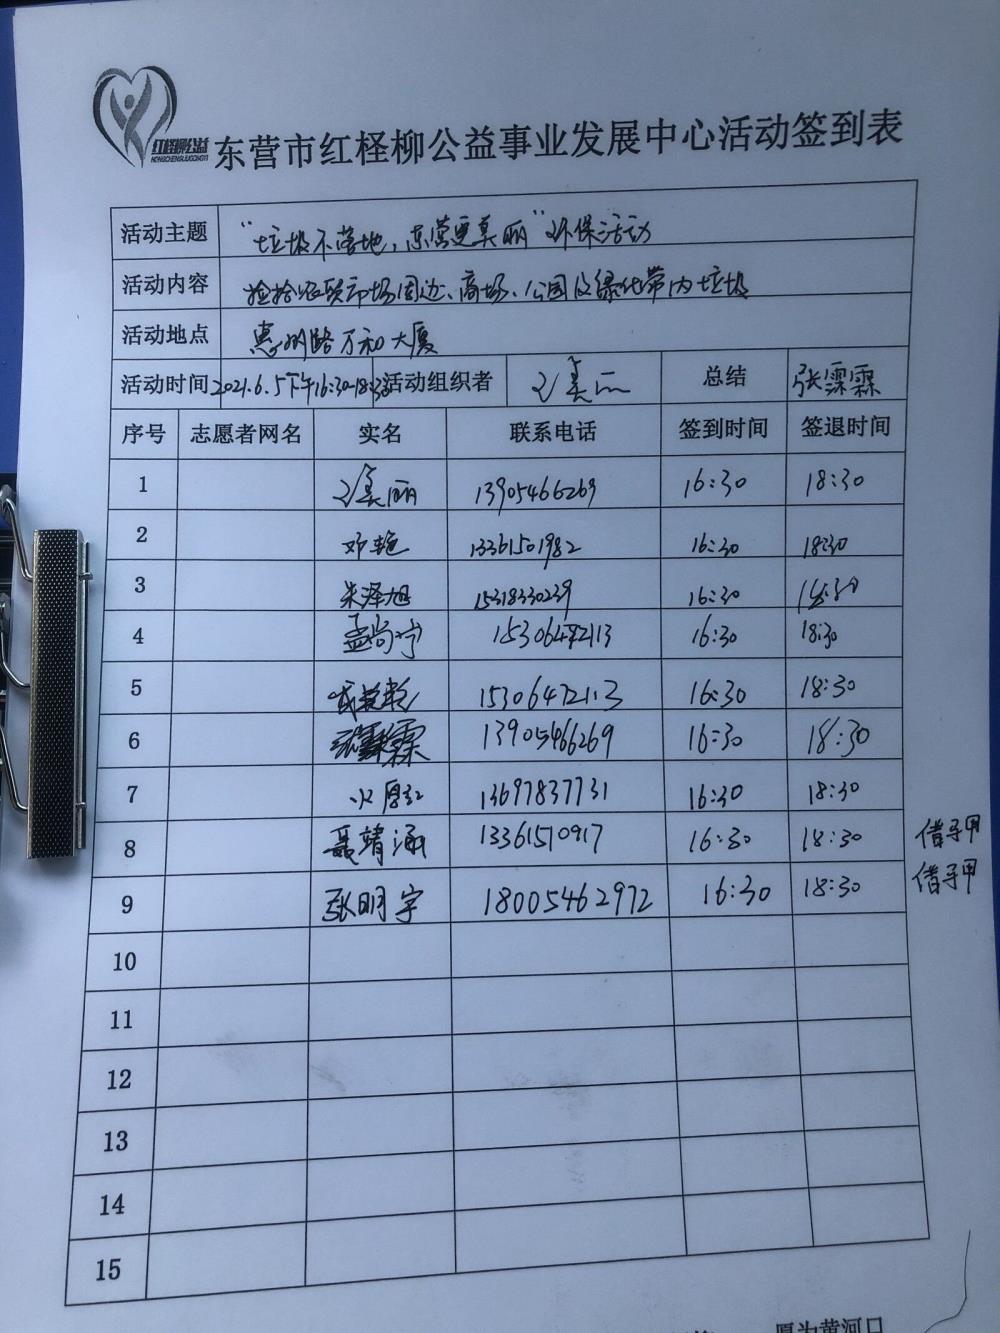 红柽柳公益
HONGCHENGLIUGONGYI
东营市红柽柳公益事业发展中心活动签到表
活动主题 “垃圾不落地，东营更美丽”环保活动
活动内容 捡拾农贸市场周边、商场、公园及绿化带内垃圾
活动地点 惠州路万和大厦
活动时间 2021.6.5下午16:30-18:30 活动组织者 美丽 总结 张霖霖
序号 志愿者网名 实名 联系电话 签到时间 签退时间
1 美丽 13905466269 16:30 18:30
2 邓艳 13361501982 16:30 18:30
3 朱泽旭 15318330239 16:30 18:30
4 孟尚宁 15306472113 16:30 18:30
5 15306472113 16:30 18:30
6 霖 13905466269 16:30 18:30
7 13697837731 16:30 18:30
8 聂靖涵 13361510917 16:30 18:30 借马甲
9 张明宇 18005462972 16:30 18:30 借马甲
10
11
12
13
14
15
愿为黄河口